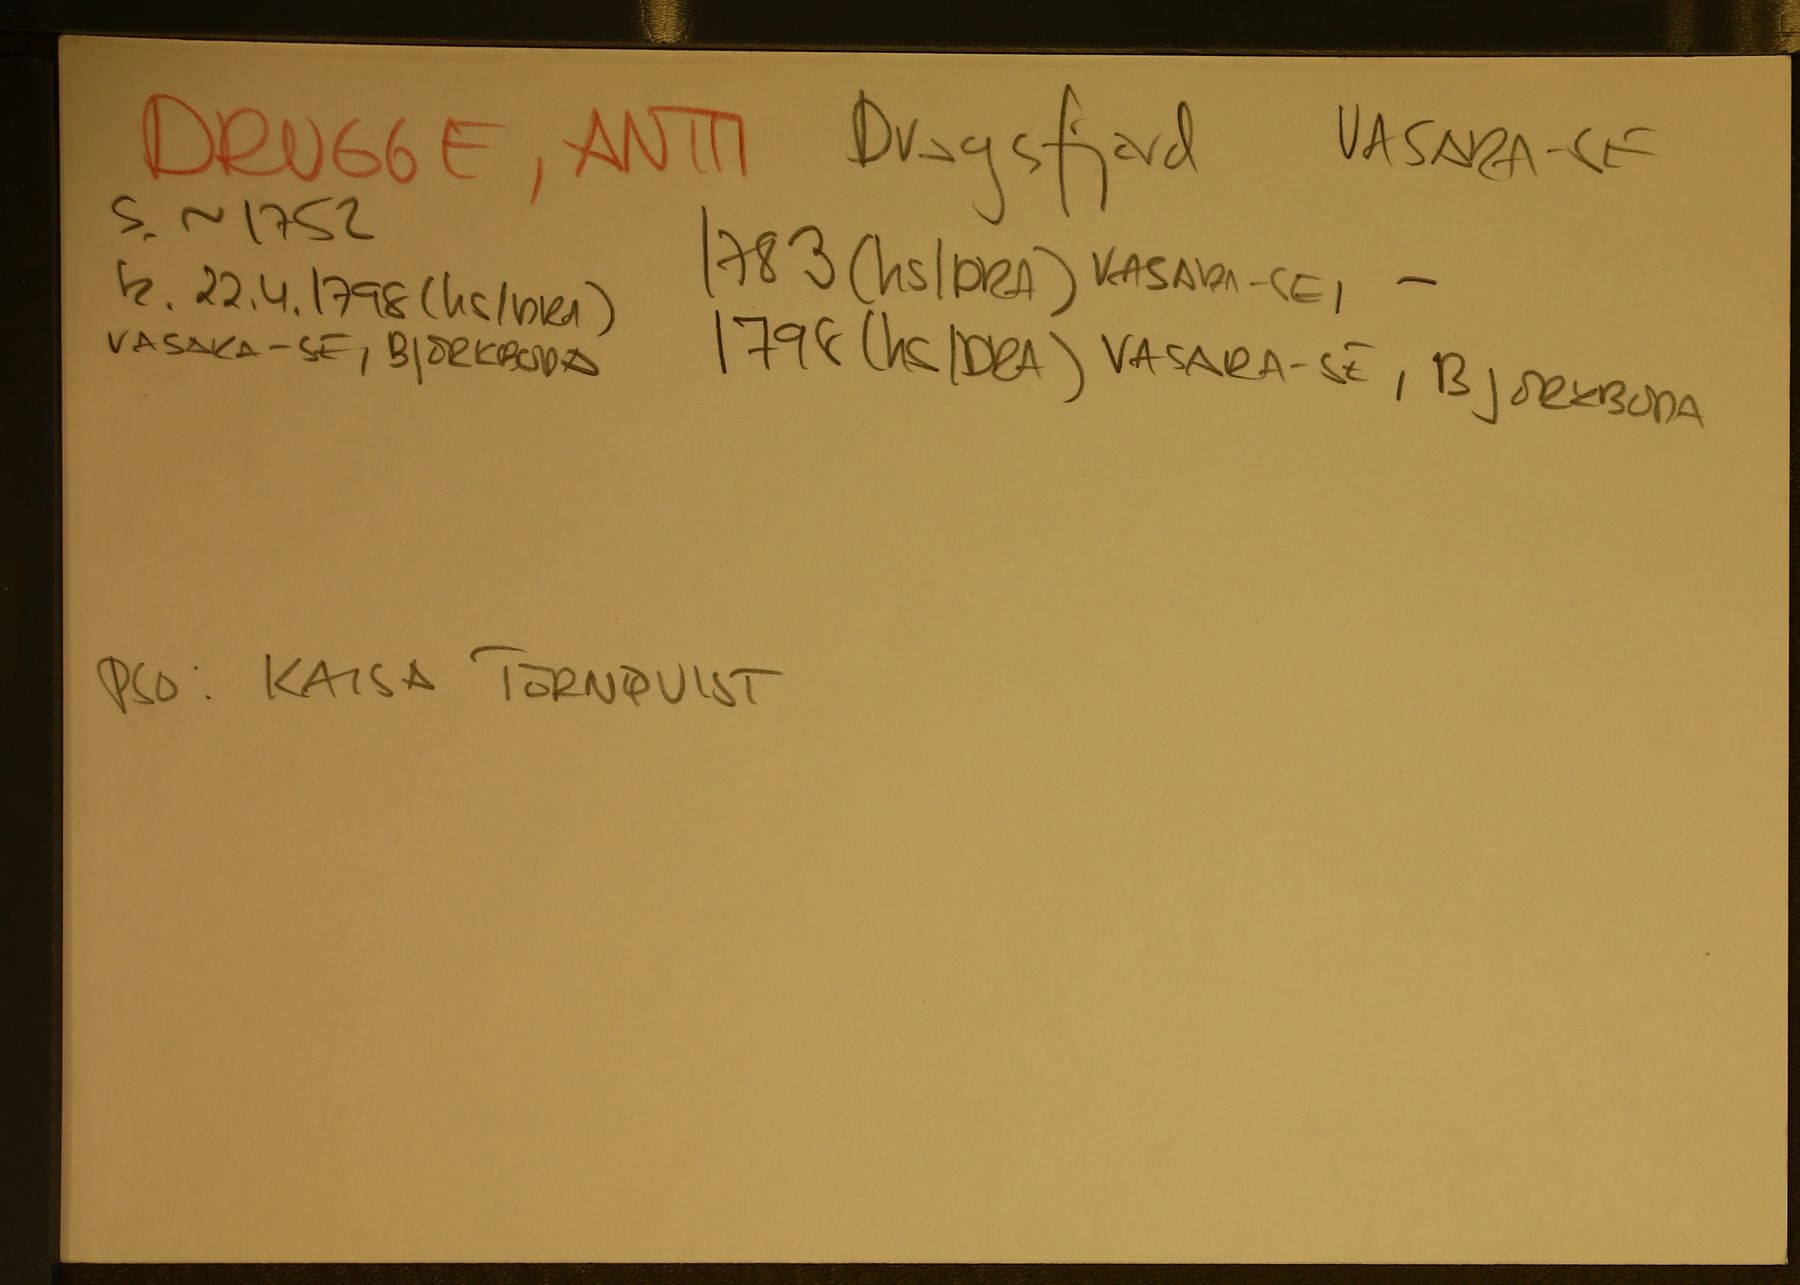 DRUGGE, ANTTI Dragsfjärd VASARA-SE
S. ~1752
k. 22.4.1798 (hs/DRA)
VASARA-SE, BJÖRKBODA
1783 (hs/DRA) VASARA-SE, –
1798 (hs/DRA) VASARA-SE, BJÖRKBODA
PSO: KAISA TÖRNQVIST